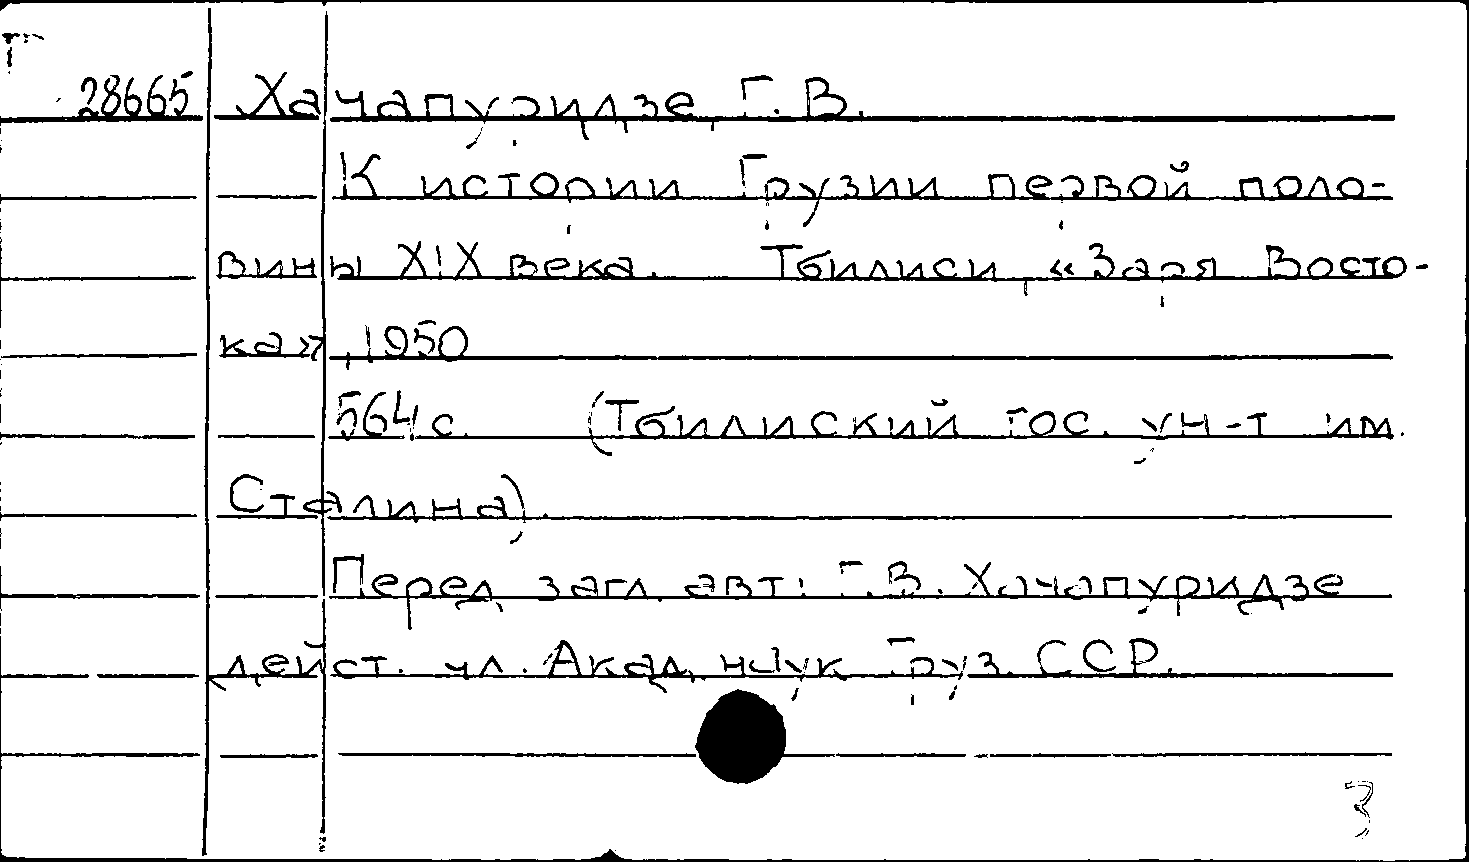 Г
28665 Хачапуридзе, Г. В.
К истории Грузии первой поло-
вины XIX века. Тбилиси, «Заря Восто-
ка», 1950
564 с. (Тбилиский гос. ун-т им.
Сталина).
Перед загл. авт: Г.В. Хачапуридзе
дейст. чл. Акад. наук Груз. ССР.
3